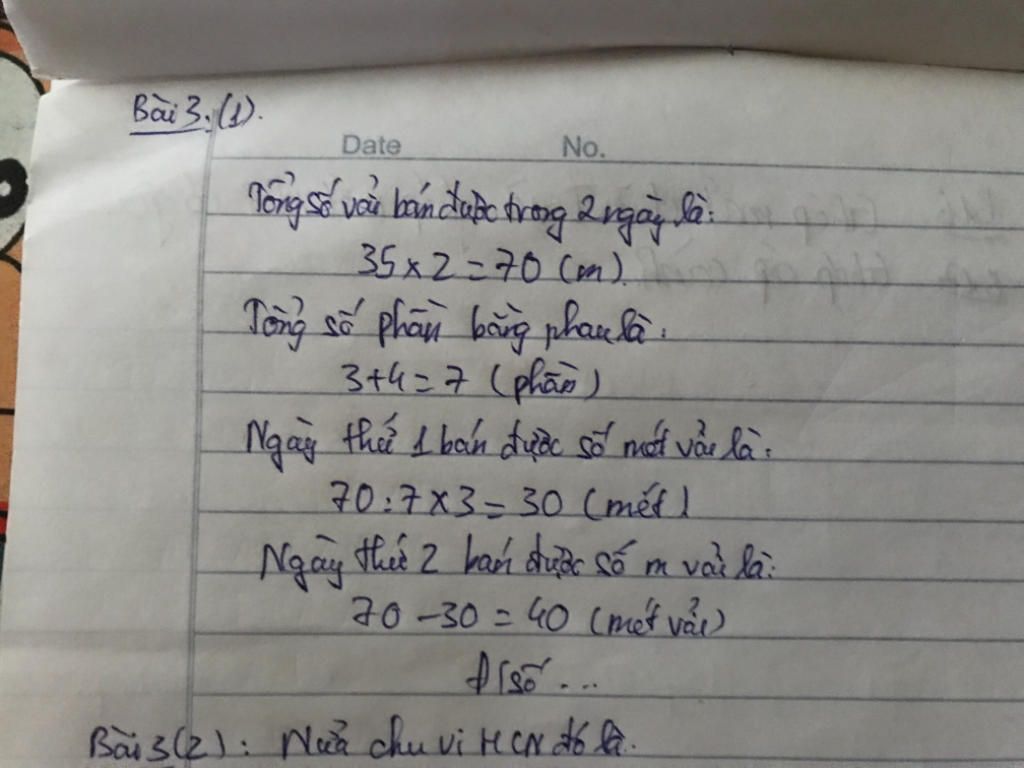 Bài 3. (1).
Date No.
Tổng số vải bán được trong 2 ngày là:
35 × 2 = 70 (m).
Tổng số phần bằng nhau là:
3 + 4 = 7 (phần)
Ngày thứ 1 bán được số mét vải là:
70 : 7 × 3 = 30 (mét)
Ngày thứ 2 bán được số m vải là:
70 - 30 = 40 (mét vải)
Đ/số ...
Bài 3(2): Nửa chu vi HCN đó là.